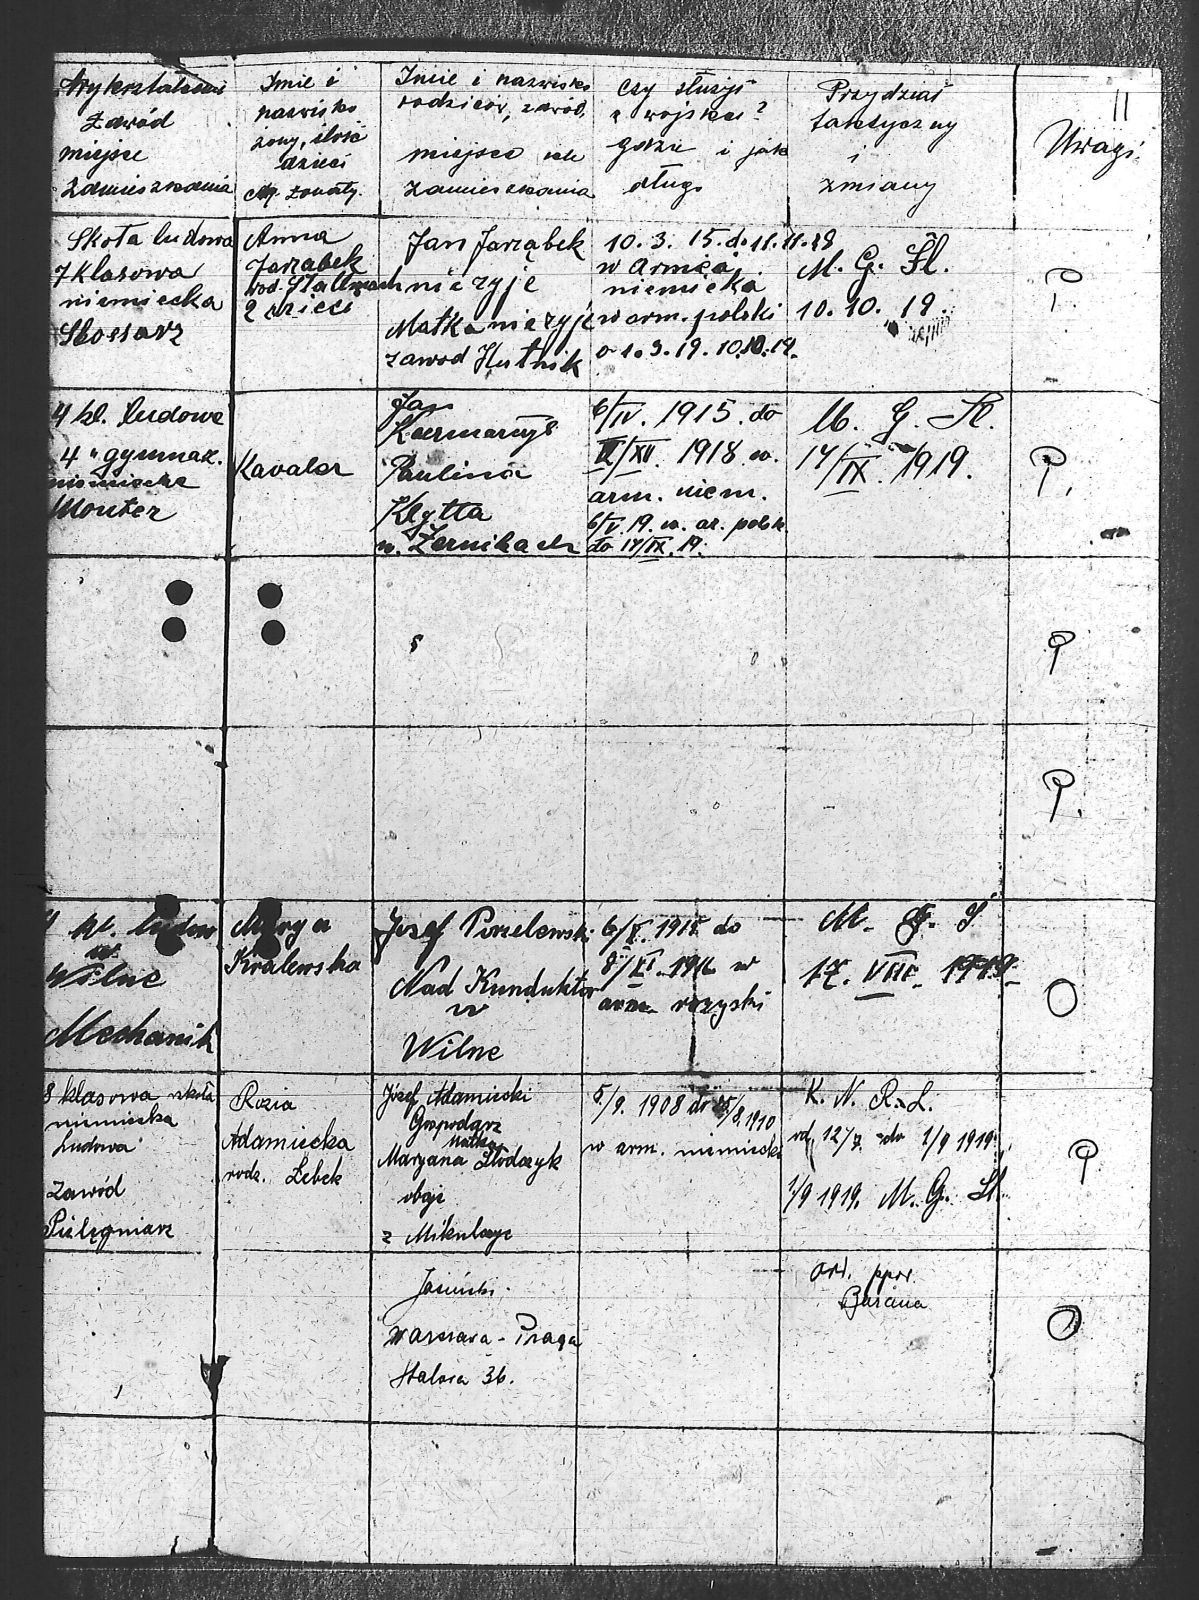 Wykształcenie
Zawód
miejsce
zamieszkania
Imie i
nazwisko
żony, ilość
dzieci
czy żonaty.
Imie i nazwisko
rodziców, zawód,
miejsce ich
zamieszkania
Czy służył
w wojsku?
gdzie i jak
długo
Przydział
taktyczny
i
zmiany
11
Uwagi
Skoła ludowa
7 klasowa
niemiecka
Slossarz
Anna
Jarząbek
rod.
2 dzieci
Jan Jarząbek
nie zyje
Matka nie zyje
zawod Hutnik
10. 3. 15. do 11. 11. 18
w Armeji
niemiecka
w arm. polski
3. 19. 10.10.19.
M. G. Śl.
10. 10. 19.
4 kl. ludowe
4 " gymnaz.
niemiecka
Monter
Kavaler
Jan
Kaczmarczyk
Paulina
Klytta
w. Żernikach
6/IV. 1915. do
/XII 1918 w.
arm. niem.
6/V. 19. w. ar. polsk.
do 17/IX. 19.
M. G. Śl.
17/IX. 1919.
4 kl. ludow
w
Wilne
Mechanik
Marya
Kralewska
Józef
Nad Kunduktor
w
Wilne
6/X. 1915 do
8/XI. 1916 w
arm. rozyski
M. G. Ś
17. VIII. 1919.
8 klasowa szkoła
niemiecka
Ludowa
Zawód
Pielęgniarz
Rozia
Adamiecka
rodz. Lebek
Józef Adamiecki
Gospodarz
Matka
Maryana Słodczyk
obaje
z Mikulczyc
5/9. 1908 do 25/8. 1910
w arm. niemiecki
K. N. R. L.
od 12/7 do 1/9 1919.
1/9 1919. M. G. Śl.
Jasiński.
Warszawa - Praga
Stalowa 36.
ord. ppor.